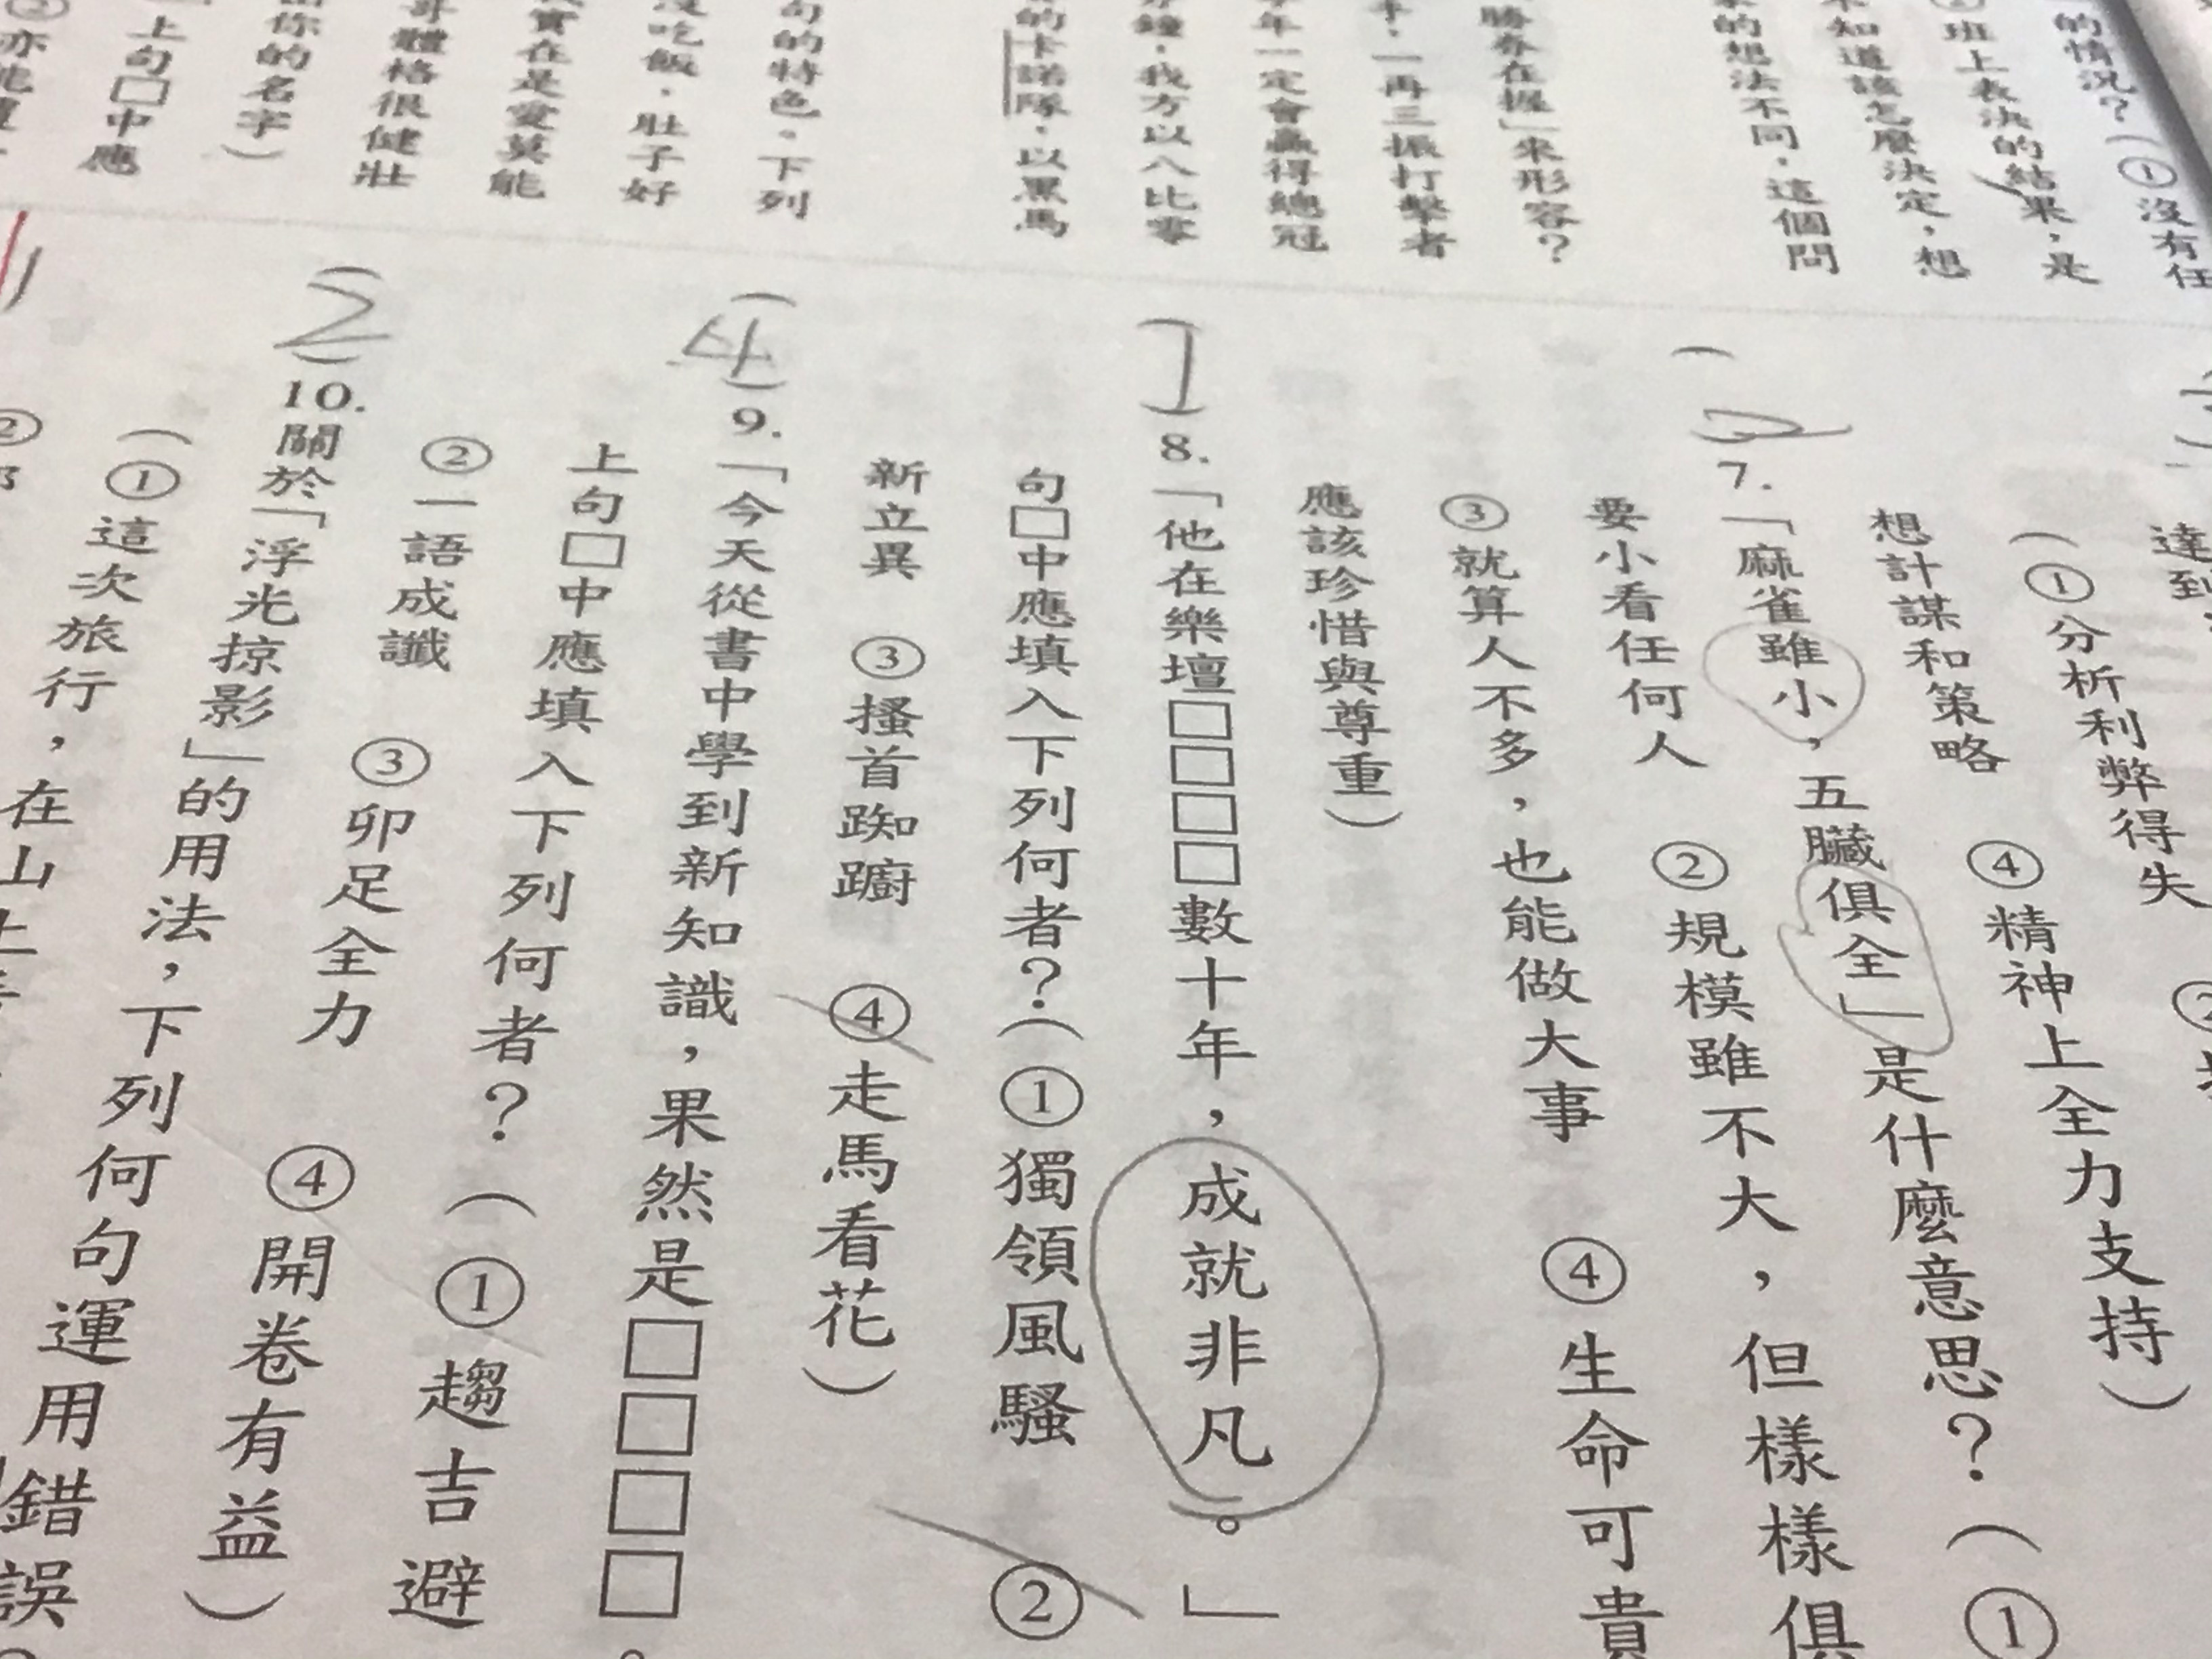 的情況？（①沒有任
②班上表決的結果，是
不知道該怎麼決定，想
的想法不同，這個問
勝券在握」來形容？
，一再三振打擊者
年一定會贏得總冠
鐘，我方以八比零
的卡諾隊，以黑馬
句的特色。下列
沒吃飯，肚子好
實在是愛莫能
哥體格很健壯
你的名字）
上句□中應
②亦能
達到
（①分析利弊得失
想計謀和策略　④精神上全力支持）
（2）7.「麻雀雖小，五臟俱全」是什麼意思？（①
要小看任何人　②規模雖不大，但樣樣俱
③就算人不多，也能做大事　④生命可貴
應該珍惜與尊重）
（1）8.「他在樂壇□□□□數十年，成就非凡。」
句□中應填入下列何者？（①獨領風騷　②
新立異　③搔首踟躕　④走馬看花）
（4）9.「今天從書中學到新知識，果然是□□□□。
上句□中應填入下列何者？（①趨吉避
②一語成讖　③卯足全力　④開卷有益）
（2）10.關於「浮光掠影」的用法，下列何句運用錯誤？
（①這次旅行，在山上
②